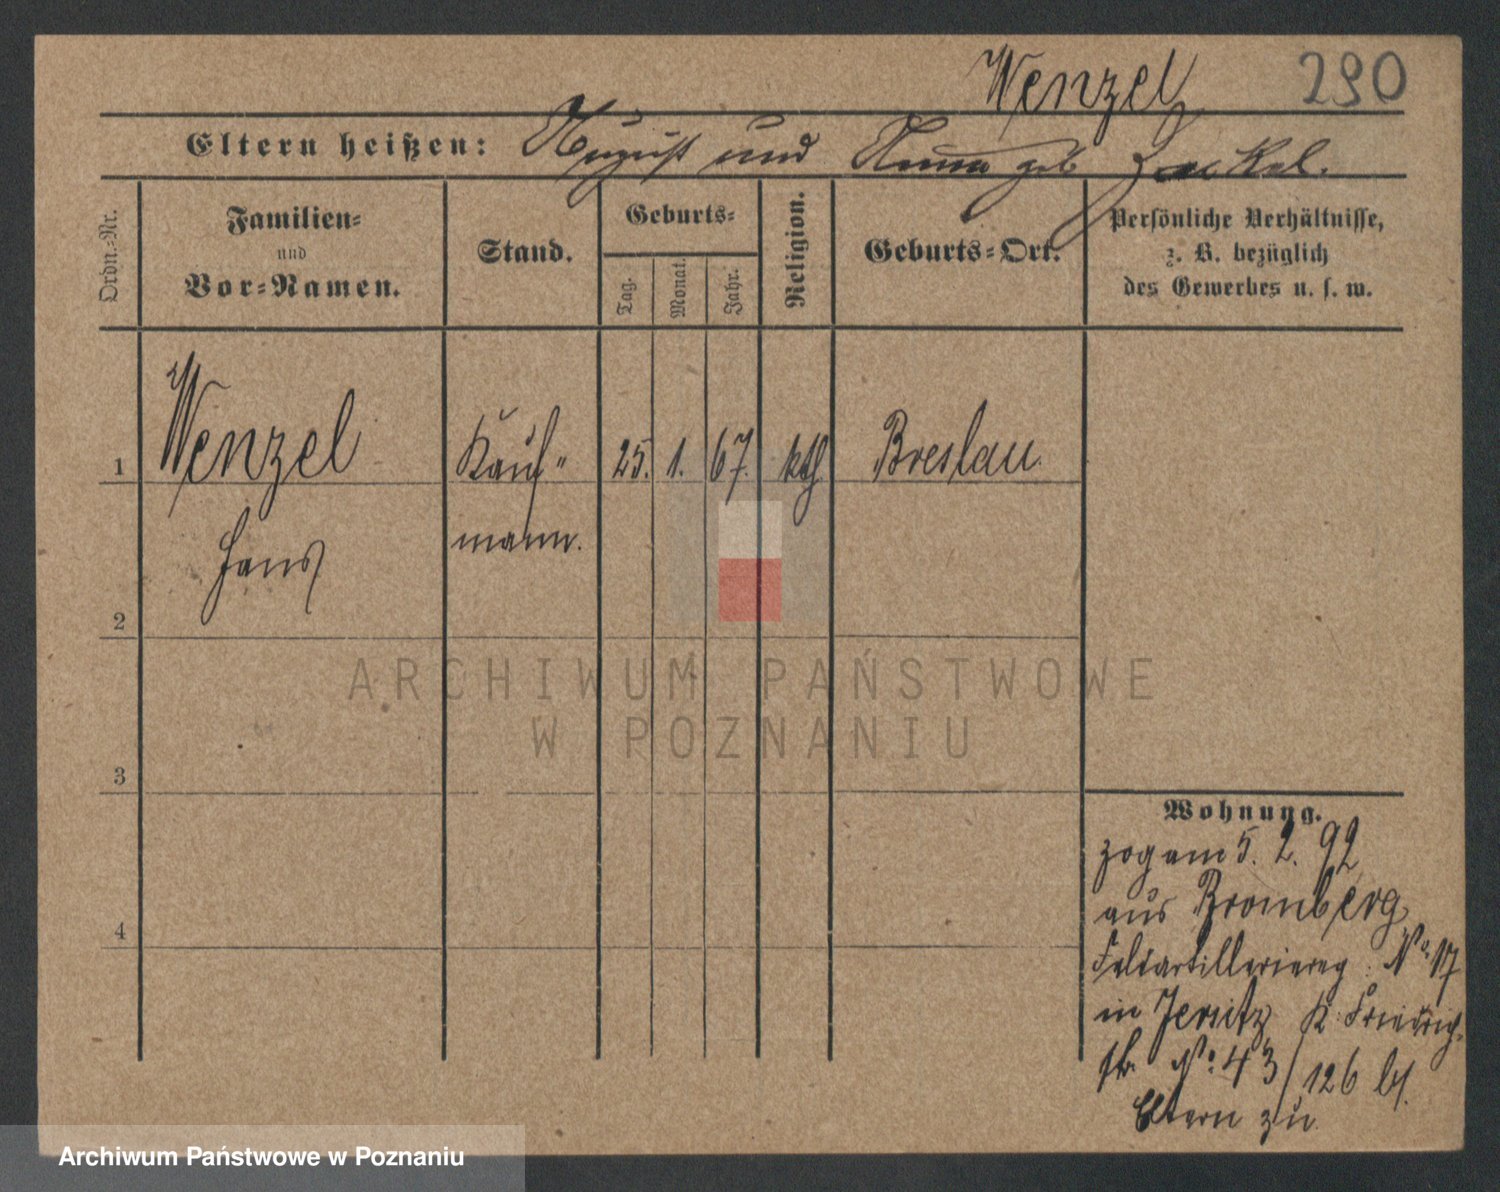 Wenzel 290
Eltern heißen: August und Anna geb
Ordn.=Nr.
Familien=
und
Vor=Namen.
Stand.
Geburts=
Tag.
Monat.
Jahr.
Religion.
Geburts=Ort.
Persönliche Verhältnisse,
z. B. bezüglich
des Gewerbes u. s. w.
1 Wenzel Kauf= 25. 1. 67. kth Breslau.
Hans mann.
2
3
4
Wohnung.
zog am 5. 2. 92
aus Bromberg
Feldartilleriereg: No. 17
in Jersitz K. Friedrich-
str. No. 43/126 bei
Eltern zu
ARCHIWUM PAŃSTWOWE
W POZNANIU
Archiwum Państwowe w Poznaniu